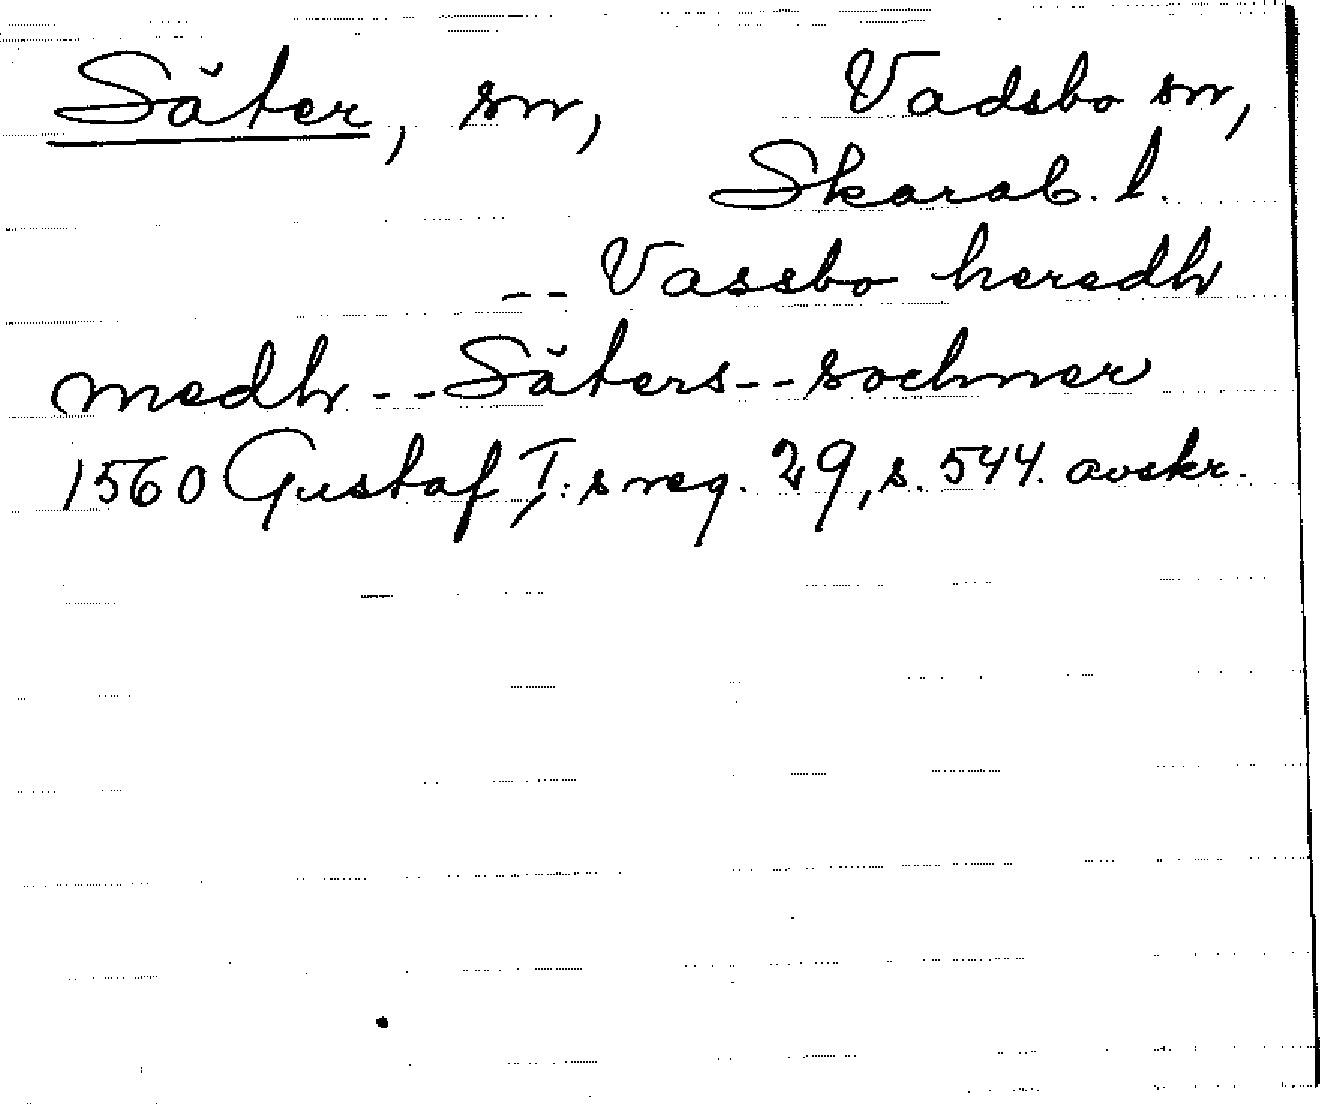 Säter, sn, Vadsbo sn,
Skarab. l.
-- Vassbo heredh
medh -- Säters -- sochner
1560 Gustaf I:s reg. 29, s. 544. avskr.